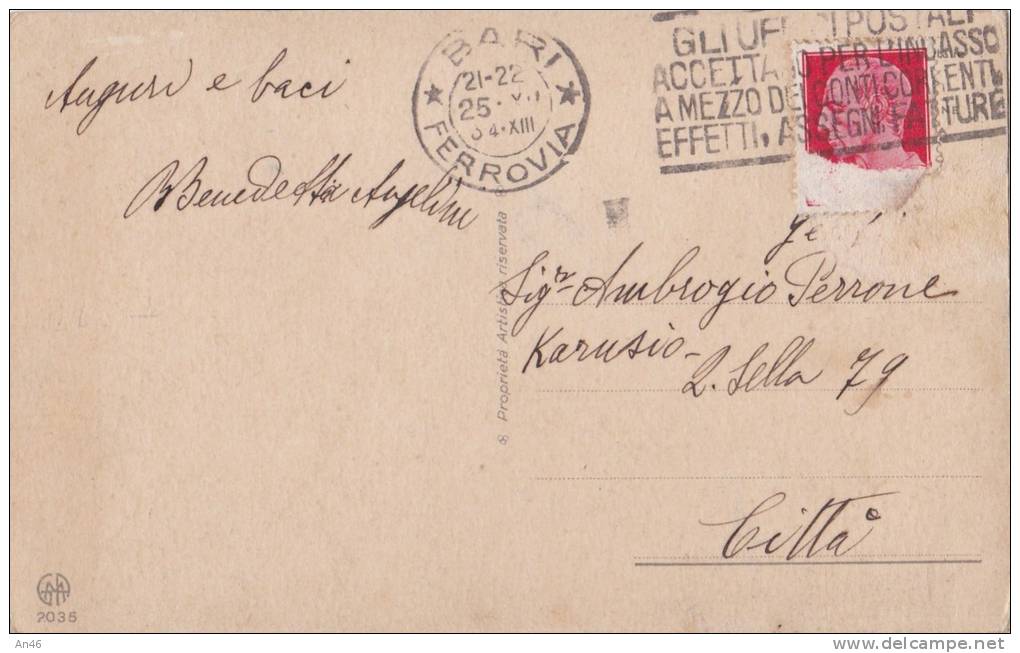 Auguri e baci
Benedetta Angelini
BARI
21-22
25 · XII
34·XIII
FERROVIA
GLI UFFICI POSTALI
ACCETTANO PER L'INCASSO
A MEZZO DEI CONTI CORRENTI,
EFFETTI, ASSEGNI, FATTURE
Proprietà Artistica riservata
Sigr Ambrogio Perrone
Karusio -
2. Sella 79
Città
2035
An46
delcampe.net